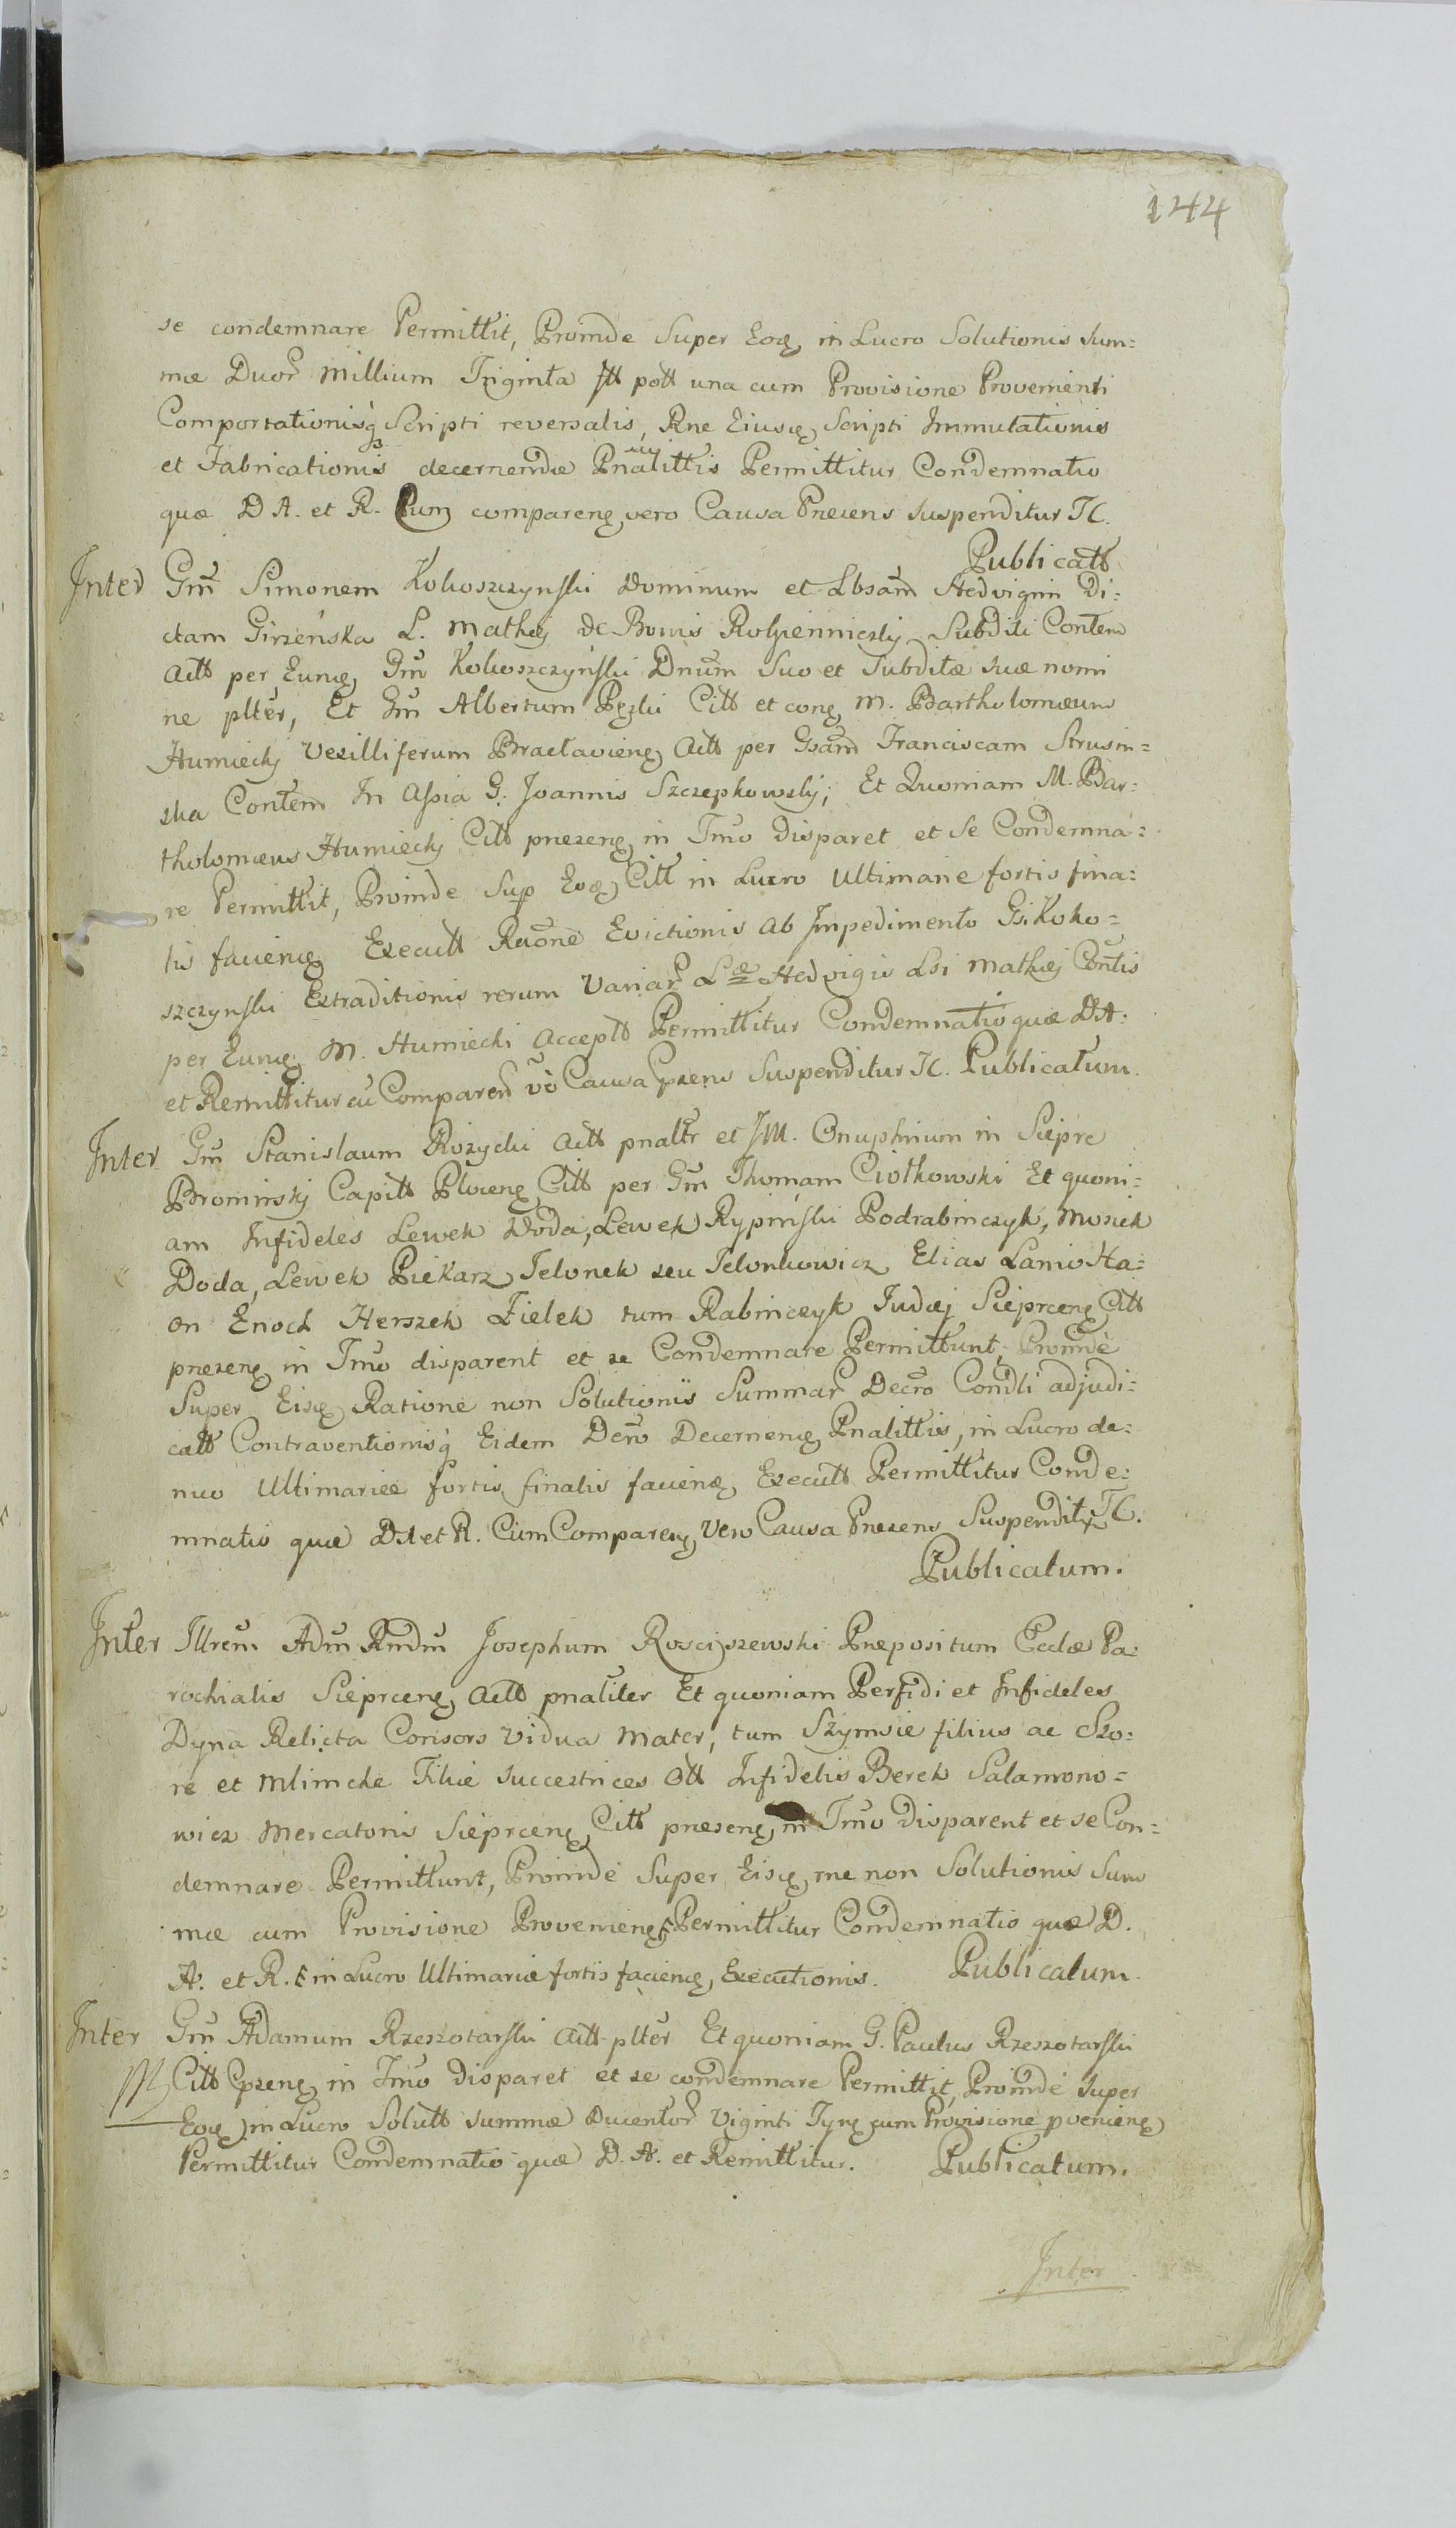 144
se condemnare Permittit, Proinde Super Eoq in Lucro Solutionis Sum=
mæ Duor Millium Triginta ftt pott una cum Provisione Provenienti
Comportationisq Scripti reversalis, Rne Eiusq Scripti Immutationis
et Fabricationis decernendæ Pnalittis Permittitur Condemnatio
quæ D A. et R. Cum compareng vero Causa Pnesens suspenditur TC.
Publicatt
Inter Gm Simonem Kokoszczynski Dominum et Lbsam Hedvigim Di=
ctam Girzenska L. Mathej De Bonis Subditi Contem
Actt per Eunq Gm Kokoszczynski Dnum Suo et Subditæ suæ nomi
ne plter, Et Gm Albertum Citt et conq M. Bartholomæum
Humiecky Vexilliferum Bracłavienq Actt per Gsam Franciscam Strusin=
ska Contem In Assia G. Joannis Szczepkowsky, Et Quoniam M. Bar=
tholomæus Humiecky Citt pnesenq in Tmo disparet et se Condemna=
re Permittit, Proinde Sup Eoq Citt in Lucro Ultimariæ fortis fina=
lis facienq Execult Raone Evictionis ab Impedimento Gsi Koko=
szczynski Extraditionis rerum Variar Læ Hedvigis Lsi Mathæj Contis
per Eunq M. Humiecki Accept Permittitur Condemnatio quæ DA:
et Remittitur cu Comparen vo Causa Pzens Suspenditur TC. Publicatum.
Inter Gm Stanislaum Rozycki Actt pnaltr et JM. Onuphrium in Sieprc
Brominskj Capitt Plocenq Citt per Gm Thomam Ciołkowski Et quoni=
am Infideles Lewek Woda, Lewek Rypinski Podrabinczyk, Mosiek
Doda, Lewek Piekarz, Jelonek seu Jelonkowicz Elias Lanio Ha=
on Enoch Herszek Zielek tum Rabinczyk Judæj Sieprcenq Citt
pnesenq in Tmo disparent et se Condemnare Permittunt, Proinde
Super Eisq Ratione non Solutionis Summar Decro Condli adjudi=
catt Contraventionisq Eidem Dcro Decernenq Pnalittis, in Lucro de=
nuo Ultimariæ fortis finalis facienq Execult Permittitur Conde=
mnatio quæ DA et R. Cum Comparenq Vero Causa Pnesens Suspendit TC.
Publicatum.
Inter Illrem Adm Rndm Josephum Rosciszewski Præpositum Ecclæ Pa=
rochialis Sieprcenq Actt pnaliter Et quoniam Perfidi et Infideles
Dyna Relicta Consors Vidua Mater, tum Szymsie filius ac Szo=
re et Mlimche Filiæ succestrices Ott Infidelis Berek Salamono=
wicz Mercatoris Sieprcenq Citt pnesenq in Tmo Disparent et se Con=
demnare Permittunt, Proinde Super Eisq rne non Solutionis Sum
mæ cum Provisione Provenienq Permittitur Condemnatio quæ D.
A. et R. in Lucro Ultimariæ fortis facienq Executionis. Publicatum.
Inter Gm Adamum Rzeszotarski Actt plter Et quoniam G. Paulus Rzeszotarski
Citt Pzenq in Tmo Disparet et se condemnare Permittit, Proinde Super
Eoq in Lucro Solutt summæ Ducentor Viginti Tynf cum Provisione pvenienq
Permittitur Condemnatio quæ D. A. et Remittitur. Publicatum.
Inter